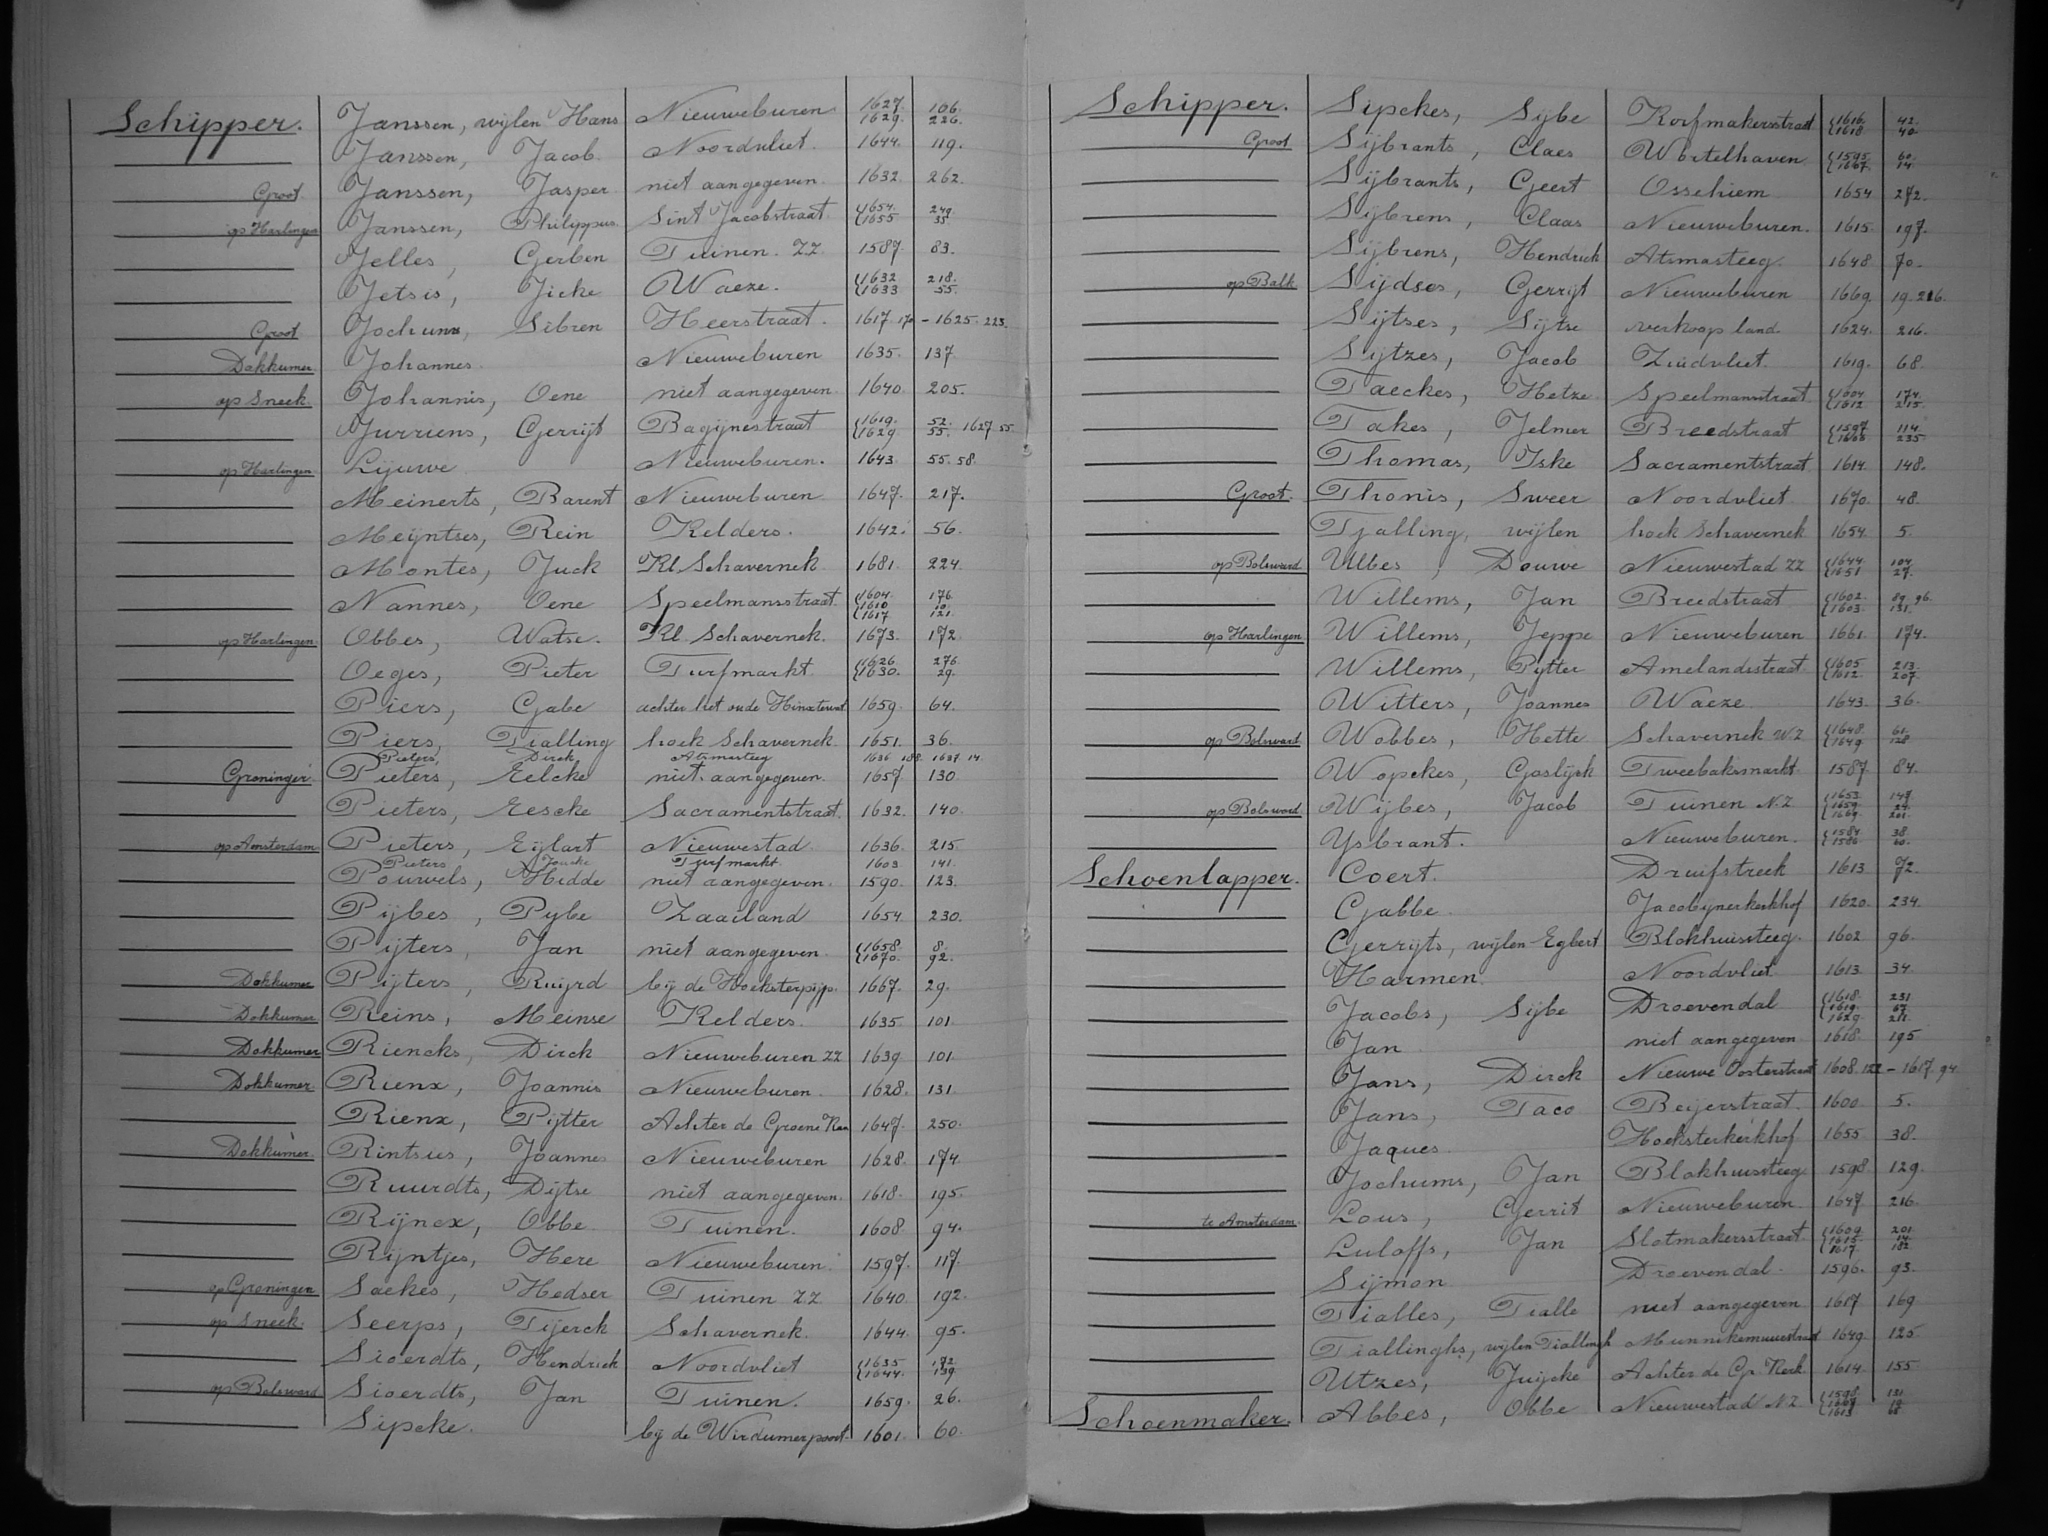 Schipper. Janssen, wijlen Hans Nieuweburen 1627. 106. 1629. 226.
Janssen, Jacob. Noordvliet. 1644. 119.
Groot Janssen, Jasper niet aangegeven. 1632. 262.
op Harlingen Janssen, Philippus Sint Jacobstraat. 1654. 249. 1655 35.
Jelles, Gerben Tuinen. ZZ. 1587. 83.
Jetsis, Jieke Waeze. 1632 218. 1633 55.
Groot Jochums, Sibren Heerstraat. 1617. 170 - 1625. 223.
Dokkumer Johannes. Nieuweburen 1635. 137
op Sneek. Johannis, Oene niet aangegeven 1640. 205.
Jurriens, Gerrijt Bagijnestraat 1619. 52. 1629 55. 1627. 55.
op Harlingen Lijuwe Nieuweburen. 1643 55. 58.
Meinerts, Barent Nieuweburen 1647. 217.
Meijntses, Rein Kelders. 1642. 56.
Montes, Juck Kl. Schavernek 1681. 224.
Nannes, Oene Speelmansstraat. 1604. 176. 1610 10. 1617 121.
op Harlingen Obbes, Watse. Kl. Schavernek. 1673. 172.
Oeges, Pieter Turfmarkt. 1626. 276. 1630. 29.
Piers, Gabe achter het oude 1659. 64.
Piers, Tialling hoek Schavernek. 1651. 36.
Pieters, Dirck Atsmasteeg 1636 108. 1637 14.
Groninger Pieters, Eelcke niet aangegeven. 1657 130
Pieters, Eescke Sacramentstraat. 1632. 140.
op Amsterdam Pieters, Eijlart Nieuwestad 1636. 215.
Pieters Joucke Turfmarkt. 1603 141.
Pouwels, Hidde niet aangegeven. 1590. 123.
Pijbes, Pybe Zaailand 1654. 230.
Pijters, Jan niet aangegeven. 1658. 8. 1670. 92.
Dokkumer Pijters, Ruijrd bij de Hoeksterpijp. 1667. 29.
Dokkumer Reins, Meinse Kelders. 1635. 101.
Dokkumer Riencks, Dirck Nieuweburen ZZ 1639. 101.
Dokkumer Rienx, Joannis Nieuweburen. 1628. 131.
Rienx, Pijtter Achter de Groene 1647. 250.
Dokkumer Rintsies, Joannes Nieuweburen 1628. 174.
Ruurdts, Dijtse niet aangegeven. 1618. 195.
Rijncx, Obbe Tuinen. 1608. 94.
Rijntjes, Here Nieuweburen. 1597. 117.
op Groningen Saekes, Hedser Tuinen ZZ. 1640. 192.
op Sneek. Seerps, Tijerck Schavernek. 1644. 95.
Sioerdts, Hendrick Noordvliet 1635 172. 1644. 139.
op Bolsward Sioerdts, Jan Tuinen. 1659. 26.
Sipcke. bij de Wirdumerpoort. 1601. 60.
Schipper. Sipckes, Sijbe Korfmakersstraat 1616. 42. 1618 40.
Groot Sijbrants, Claes Wortelhaven 1595. 60. 1667. 14.
Sijbrants, Geert Ossekiem 1654 272.
Sijbrens, Claas Nieuweburen. 1615. 197.
Sijbrens, Hendrick Atsmasteeg. 1648. 70.
op Balk Sijdses, Gerrijt Nieuweburen 1669. 19. 216.
Sijtses, Sijtse verkoop land. 1624. 216.
Sijtzes, Jacob Zuidvliet. 1619. 68.
Taeckes, Hetze Speelmansstraat 1604 174. 1612 215.
Takes, Jelmer Breedstraat 1597 114. 1608 235.
Thomas, Iske Sacramentstraat 1614. 148.
Groot. Thonis, Sweer Noordvliet. 1670. 48.
Tjalling, wijlen hoek Schavernek 1654. 5.
op Bolsward Ulbes, Douwe Nieuwestad ZZ 1644. 104. 1651 27.
Willems, Jan Breedstraat. 1602. 89. 96. 1603. 131.
op Harlingen Willems, Jeppe Nieuweburen 1661. 174.
Willems, Pytter Amelandsstraat 1605. 213. 1612. 207.
Witters, Joannes Waeze. 1643. 36.
op Bolswart Wobbes, Hette Schavernek WZ 1648. 61. 1649. 128.
Wopckes, Goslijck Tweebaksmarkt. 1587 84.
op Bolsward Wijbes, Jacob Tuinen NZ 1653. 147. 1659. 24. 1669. 201.
Ysbrant. Nieuweburen. 1584. 38. 1586. 60.
Schoenlapper. Coert. Druifstreek 1613 72.
Gabbe. Jacobijnerkerkhof 1620. 234.
Gerrijts, wijlen Egbert Blokhuissteeg. 1602 96.
Harmen. Noordvliet. 1613. 34.
Jacobs, Sijbe Droevendal 1618. 231 1619. 67. 1629. 211.
Jan niet aangegeven 1618. 195
Jans, Dirck Nieuwe Oosterstraat 1608. 122 - 1617. 94.
Jans, Taco Beijerstraat. 1600. 5.
Jaques. Hoeksterkerkhof 1655 38.
Jochums, Jan Blokhuissteeg 1598 129.
te Amsterdam. Lous, Gerrit Nieuweburen 1647. 216.
Luloffs, Jan Slotmakersstraat 1609. 201. 1615. 14. 1617. 182.
Sijmon Droevendal. 1596. 93.
Tialles, Tialle niet aangegeven 1617 169
Tiallinghs, wijlen Tiallingh Munnikemuurstraat 1649. 125
Utzes, Juijcke Achter de Gr. Kerk 1614. 155
Schoenmaker. Abbes, Obbe Nieuwestad NZ. 1598. 131. 1607 19. 1613 68